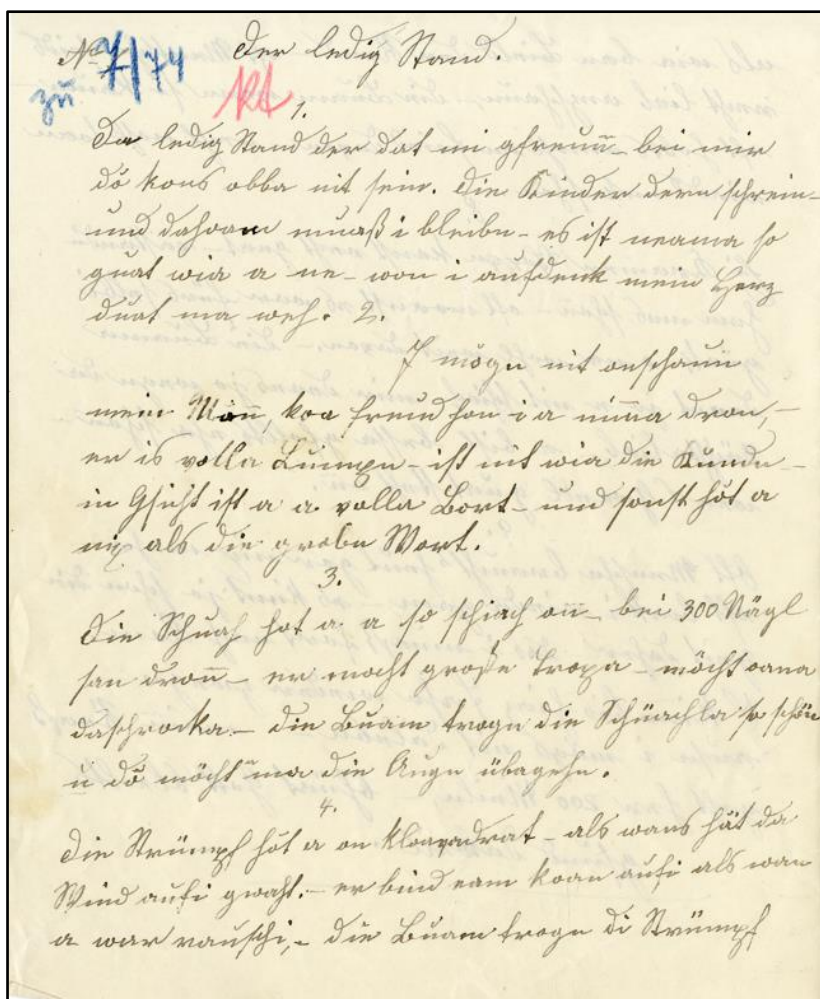 № 7/74 Der ledig Stand.
zu kt
1.
Da ledig Stand der dat mi gfreun̄ – bei mir
dö kons obba nit sein. die Kinder dern schrein –
und dahoam muaß i bleibn – es ist neama so
guat wia a ne – won i aufdenk mein Herz
duat ma weh. 2.
I mögn nit onschaun
mein Mōn̄, koa freud hon i a nim̄a dron, –
er is volla Lumpn – ist nit wia die Kundn –
in Gsicht ist a a. volla Bort – und sonst höt a
nix als die grobn Wort.
3.
Die Schuah hot a a so schiach on̄ – bei 300 Nägl
san dron̄ – er mocht große Tropa – möcht oana
daschrocka – die Buam trogn die Schüachla so schön
u dö möcht ma die Augn übagehn.
4.
Die Strümpf höt a on kloavadrat – als wans hät da
Wind aufi gwaht. – er bind eam koan aufi als wan
a war rauschi, – die Buam trogn di Strümpf